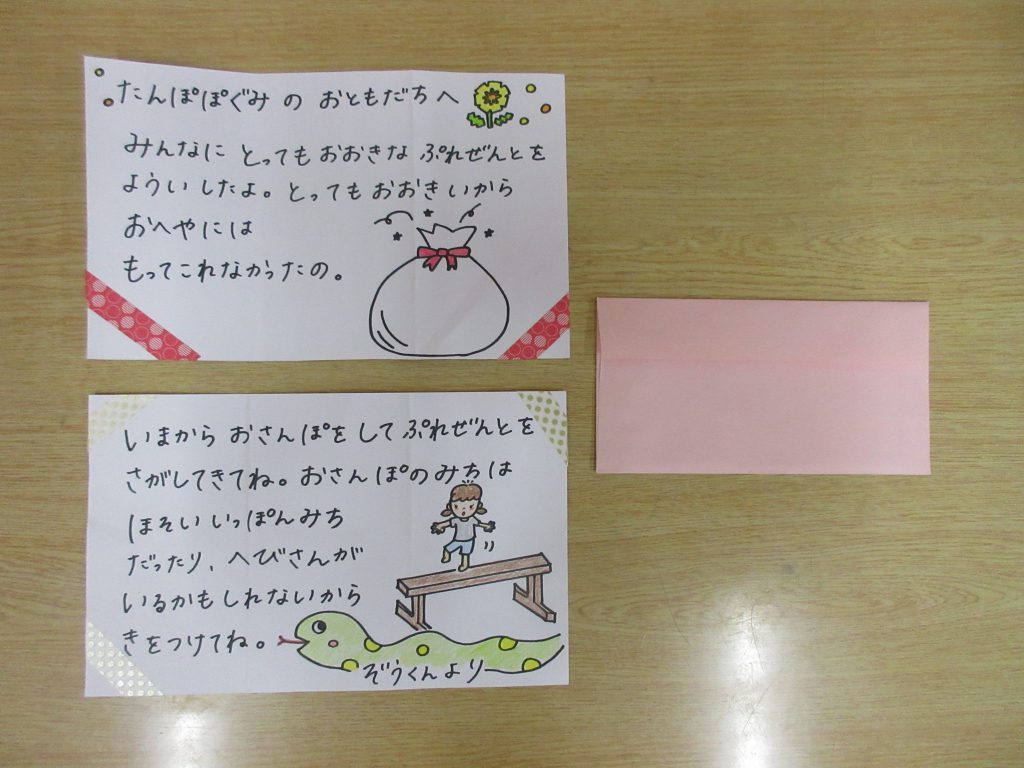 たんぽぽぐみ の おともだちへ
みんなに とっても おおきな ぷれぜんとを
よういしたよ。とっても おおきいから
おへやには
もってこれなかったの。
いまから おさんぽを して ぷれぜんとを
さがしてきてね。おさんぽのみちは
ほそい いっぽんみち
だったり、へびさんが
いるかもしれないから
きをつけてね。
ぞうくんより